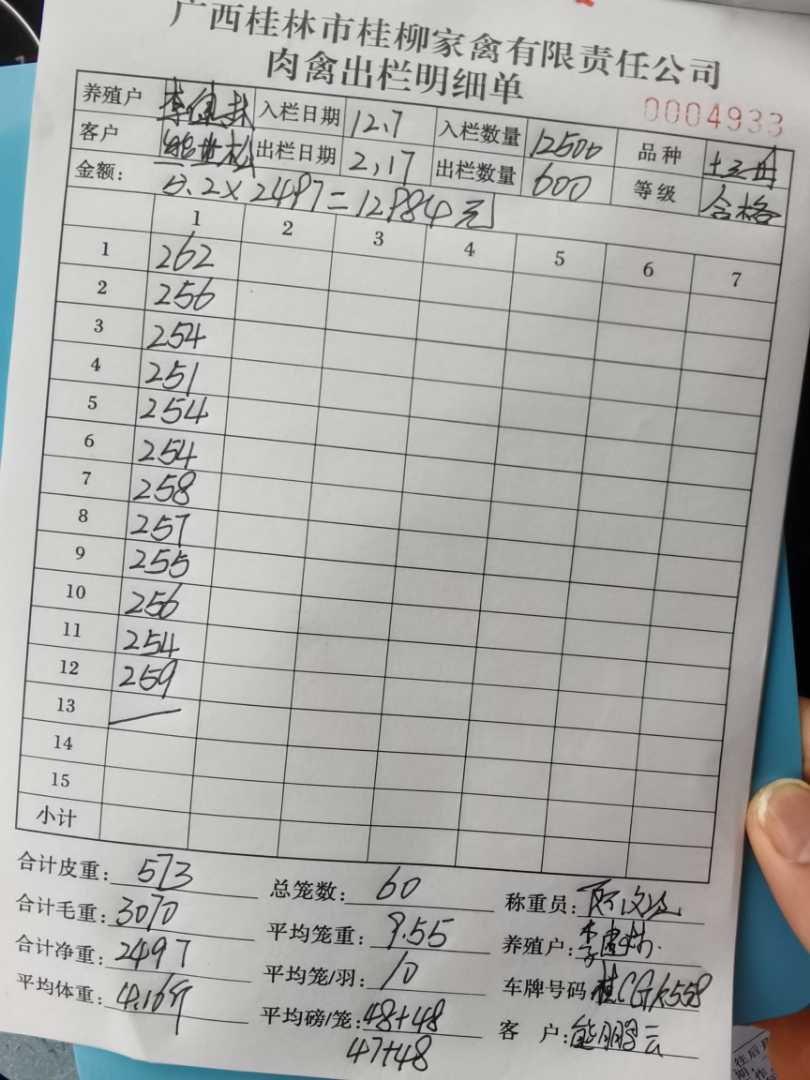 广西桂林市桂柳家禽有限责任公司
肉禽出栏明细单
0004933
养殖户 入栏日期 12.7 入栏数量 12500 品种
客户 熊世松 出栏日期 2,17 出栏数量 600 等级 合格
金额: 5.2×2497=12984元
1 2 3 4 5 6 7
1 262
2 256
3 254
4 251
5 254
6 254
7 258
8 257
9 255
10 256
11 254
12 259
13
14
15
小计
合计皮重: 573 总笼数: 60 称重员:
合计毛重: 3070 平均笼重: 9.55 养殖户:
合计净重: 2497 平均笼/羽: 10 车牌号码 桂CGK558
平均体重: 4.16斤 平均磅/笼: 48+48 客户: 熊鹏云
47+48